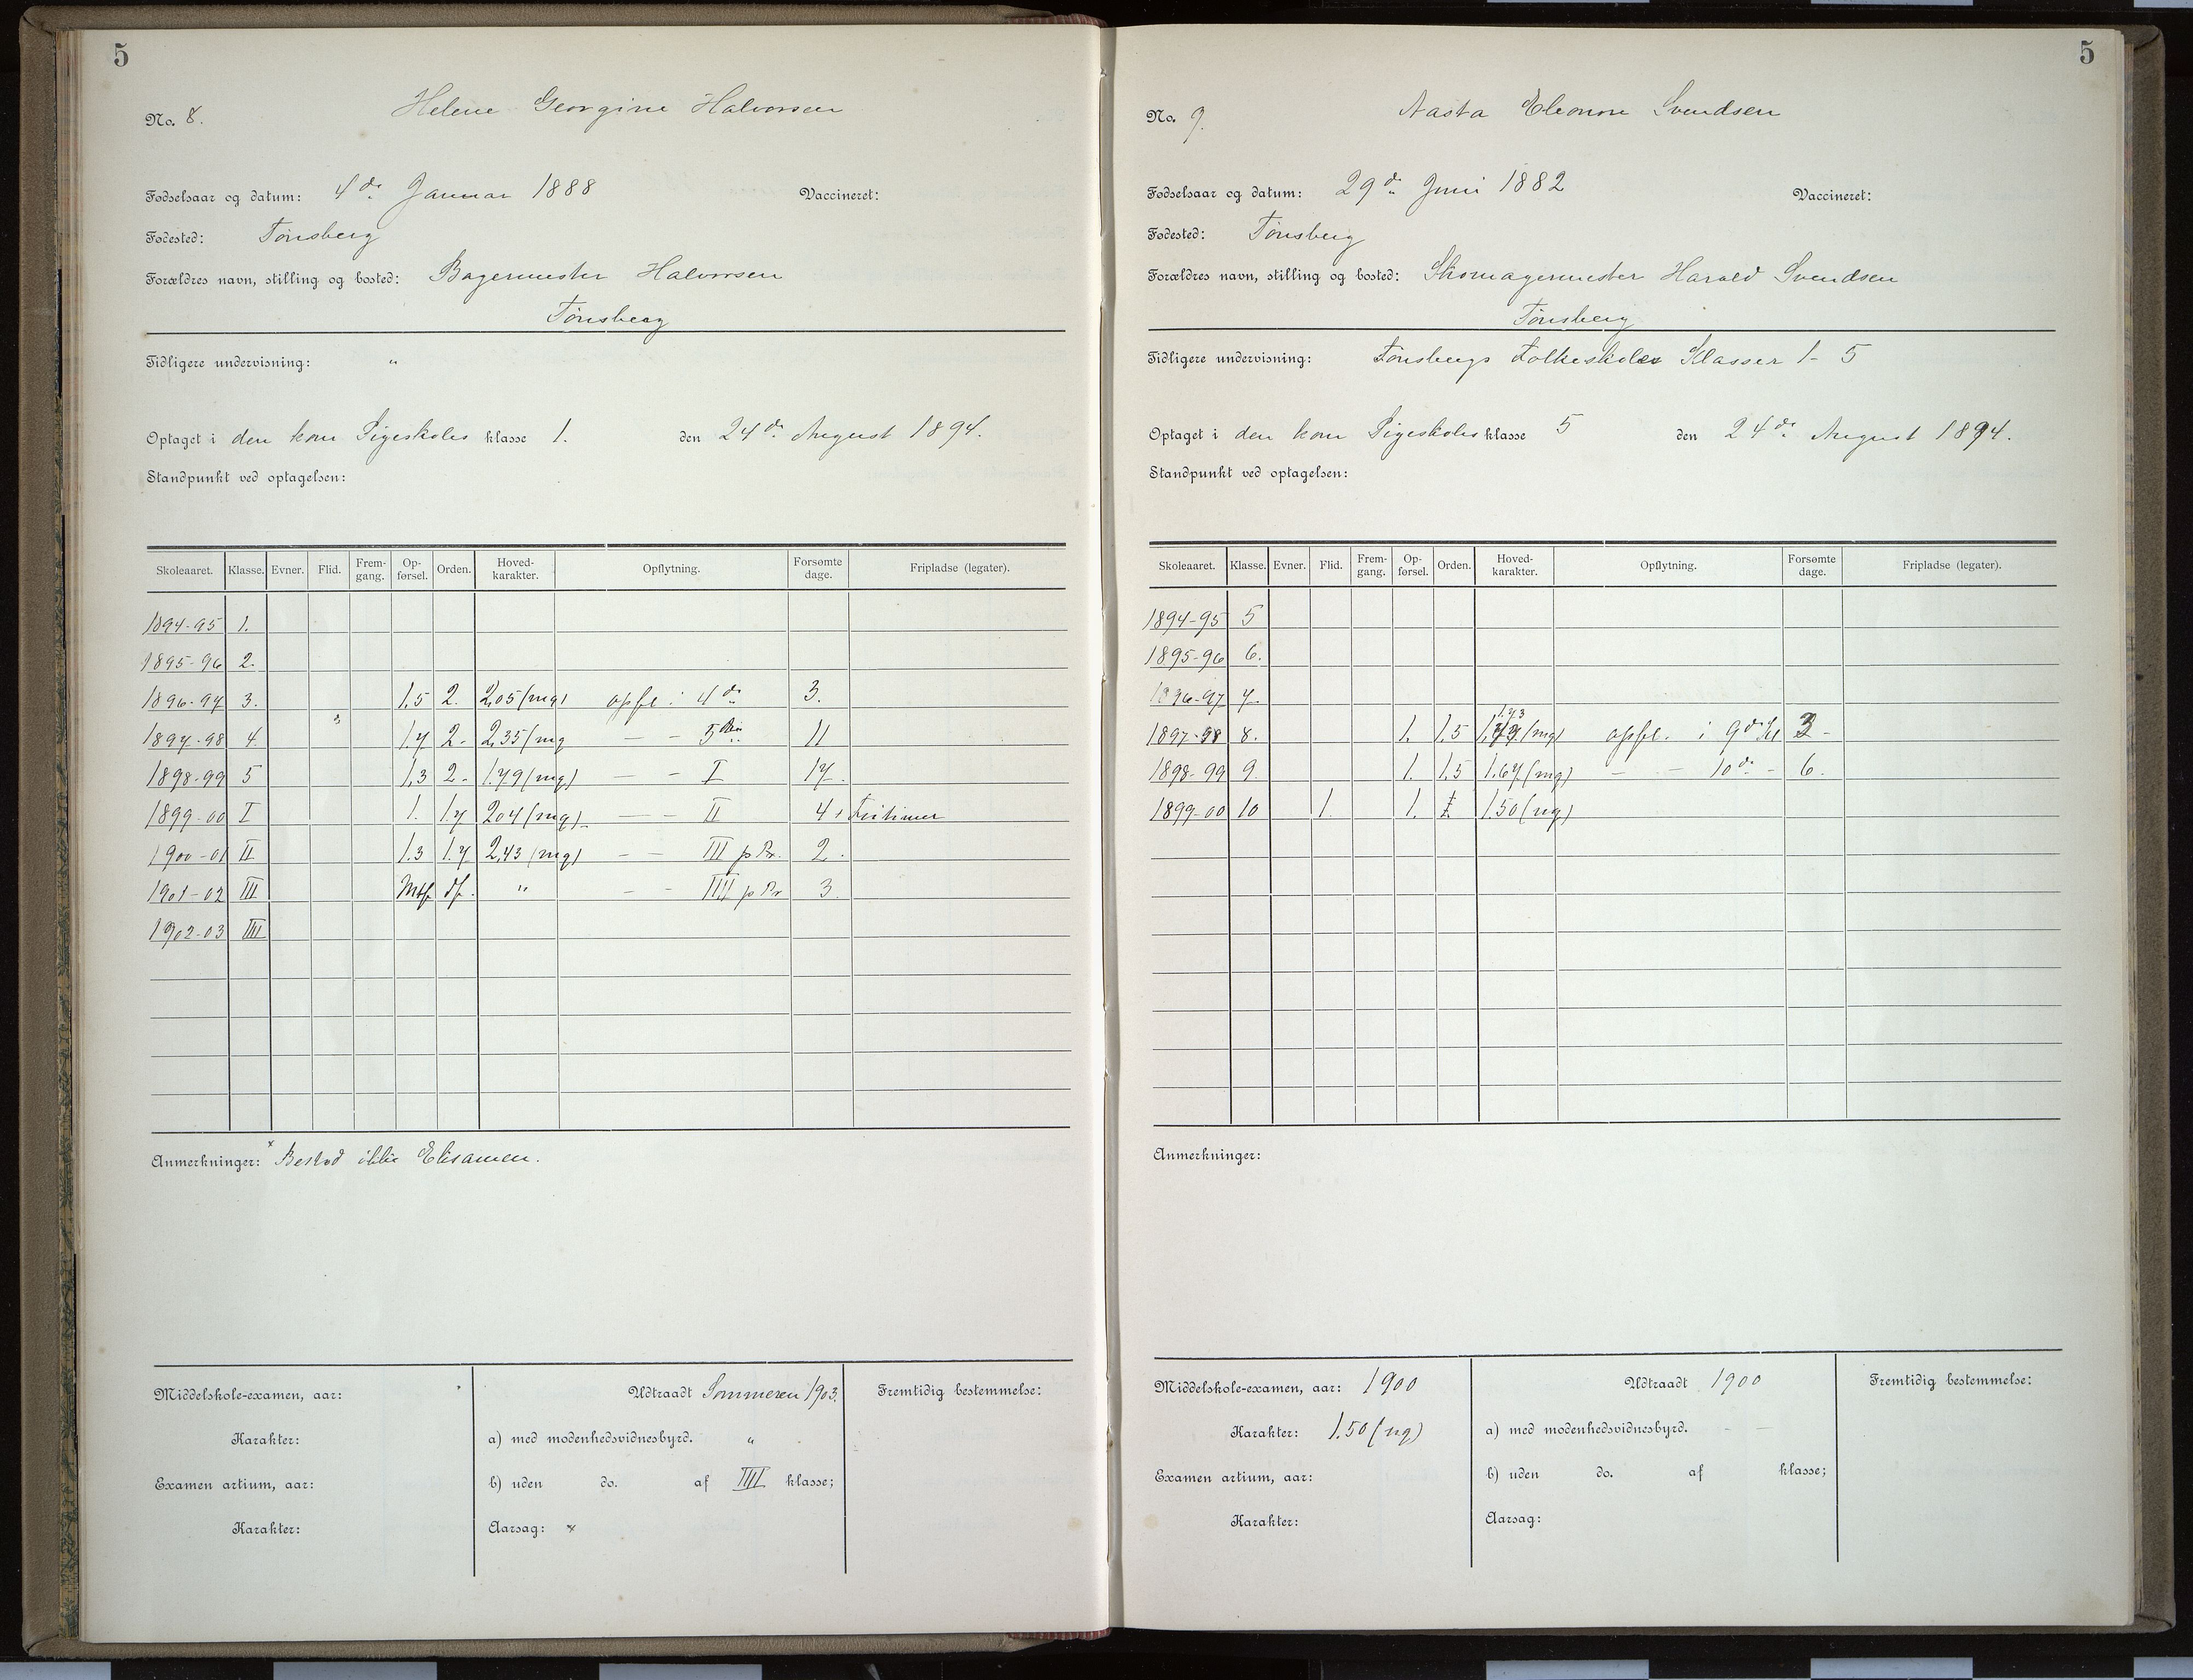 5
No. 8. Helene Georgine Halvorsen
Fødselsaar og datum: 4de Januar 1888 Vaccineret:
Fødested: Tønsberg
Forældres navn, stilling og bosted: Bagermester Halvorsen
Tønsberg
Tidligere undervisning: "
Optaget i den kom Pigeskoles klasse 1. den 24de August 1894.
Standpunkt ved optagelsen:
Skoleaaret. Klasse. Evner. Flid. Frem-gang. Op-førsel. Orden. Hoved-karakter. Opflytning. Forsømte dage. Fripladse (legater).
1894-95 1.
1895-96 2.
1896-97 3. 1,5 2. 2,05 (mg) opfl. i 4de 3.
1897-98 4. 1.7 2. 2,35 (mg — — 5te 11
1898-99 5 1,3 2. 1.79 (mg) — — I 17.
1899-00 I 1. 1.7 2.04 (mg) — — II 4
1900-01 II 1.3 1.7 2,43 (mg) — — III p Pr. 2.
1901-02 III Mtf. " — — IIII p Pr 3.
1902-03 IIII
Anmerkninger: x Bestod ikke Eksamen.
Middelskole-examen, aar: Udtraadt Sommeren 1903. Fremtidig bestemmelse:
Karakter: a) med modenhedsvidnesbyrd. "
Examen artium, aar: b) uden do. af IIII klasse;
Karakter: Aarsag: x
5
No. 9. Aasta Eleonore Svendsen
Fødselsaar og datum: 29de Juni 1882 Vaccineret:
Fødested: Tønsberg
Forældres navn, stilling og bosted: Skomagermester Harald Svendsen
Tønsberg
Tidligere undervisning: Tønsbergs Folkeskoles Klasser 1-5
Optaget i den kom Pigeskoles klasse 5 den 24de August 1894.
Standpunkt ved optagelsen:
Skoleaaret. Klasse. Evner. Flid. Frem-gang. Op-førsel. Orden. Hoved-karakter. Opflytning. Forsømte dage. Fripladse (legater).
1894-95 5
1895-96 6.
1896-97 7.
1897-98 8. 1. 1,5 1.73 (mg) opfl. i 9de Kl 3 -
1898-99 9. 1. 1.5 1.67 (mg) — — 10de - 6.
1899-00 10 1. 1. 1.50 (ug)
Anmerkninger:
Middelskole-examen, aar: 1900 Udtraadt 1900 Fremtidig bestemmelse:
Karakter: 1.50 (ug) a) med modenhedsvidnesbyrd. - —
Examen artium, aar: b) uden do. af klasse;
Karakter: Aarsag: